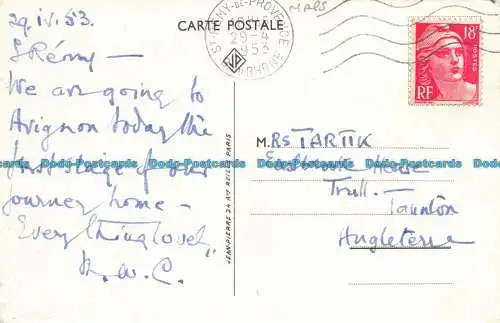 29.IV.53.
CARTE POSTALE
ST REMY-DE-PROVENCE
29-4
1953
B. DU RHONE
JP
18F
POSTES
RF
St Rémy —
We are going to
Avignon today the
first stage of our
journey home —
Everything lovely
R.W.C.
JEAN-PIERRE 24 AV. REILLE PARIS
MRS TARTIK
Eastbrook House
Trull. —
Taunton
Angleterre
Dodo-Postcards Dodo-Postcards Dodo-Postcards Dodo-Postcards Dodo-Postcards Dodo-Postcards